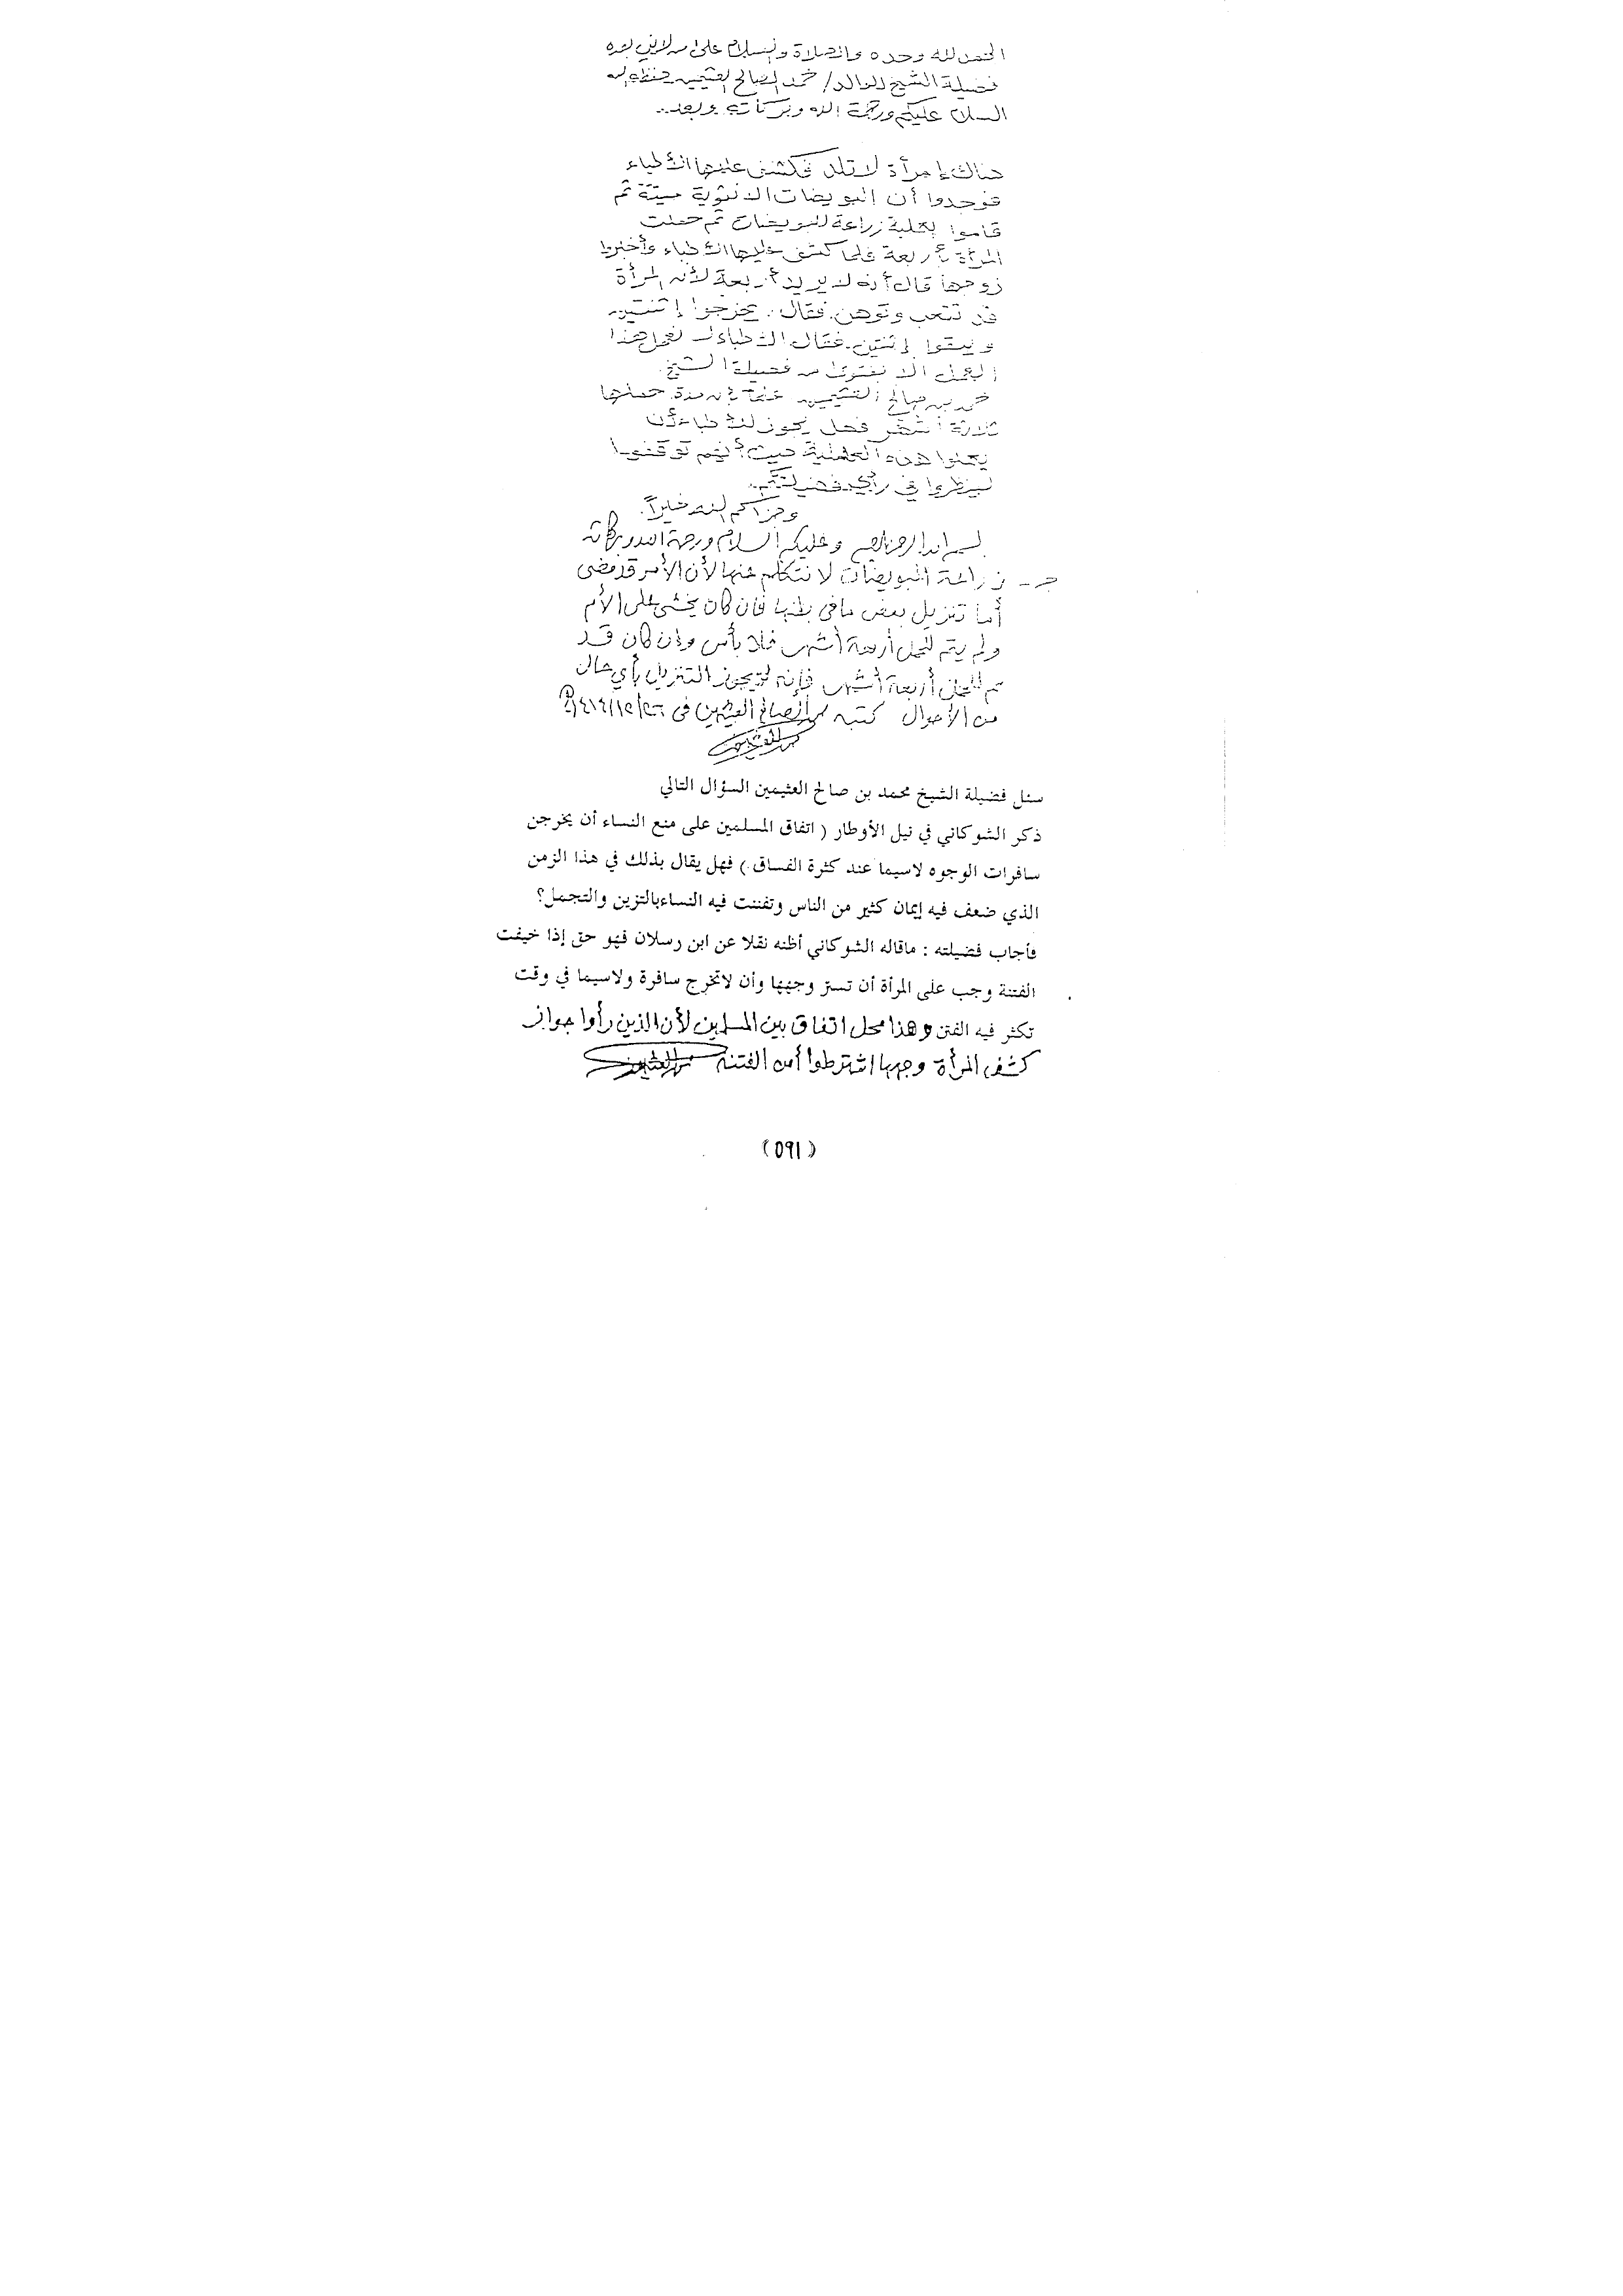 الحمد لله وحده والصلاة والسلام على من لا نبي بعده
فضيلة الشيخ الوالد / محمد الصالح العثيمين حفظه الله
السلام عليكم ورحمة الله وبركاته وبعد ..
هناك إمرأة لا تلد فكشف عليها الأطباء
فوجدوا أن البويضات الأنثوية ميتة ثم
قاموا بعملية زراعة للبويضات ثم حملت
المرأة بأربعة فلما كشف عليها الأطباء وأخبروا
زوجها قال أنه لا يريد أربعة لأن المرأة
قد تتعب وتوهن. فقال: يخرجوا إثنتين
ويبقوا إثنتين. فقال الأطباء لا نعمل هذا
العمل إلا بفتوى من فضيلة الشيخ
محمد بن صالح العثيمين علماً بأن مدة حملها
ثلاثة أشهر فهل يجوز للأطباء أن
يعملوا هذه العملية حيث أنهم توقفوا
لينظروا في رأي فضيلتكم..
وجزاكم الله خيراً.
بسم الله الرحمن الرحيم وعليكم السلام ورحمة الله وبركاته
جـ - زراعة البويضات لا نتكلم عنها لأن الأمر قد مضى
أما تنزيل بعض ما في بطنها فإن كان يخشى على الأم
ولم يتم للحمل أربعة أشهر فلا بأس وإن كان قد
تم للحمل أربعة أشهر فإنه لا يجوز التنزيل بأي حال
من الأحوال كتبه محمد الصالح العثيمين في ١٤١٤/١٢/٢٦هـ
محمد العثيمين
سئل فضيلة الشيخ محمد بن صالح العثيمين السؤال التالي
ذكر الشوكاني في نيل الأوطار ( اتفاق المسلمين على منع النساء أن يخرجن
سافرات الوجوه لاسيما عند كثرة الفساق ) فهل يقال بذلك في هذا الزمن
الذي ضعف فيه إيمان كثير من الناس وتفننت فيه النساءبالتزين والتجمل؟
فأجاب فضيلته : ماقاله الشوكاني أظنه نقلا عن ابن رسلان فهو حق إذا خيفت
الفتنة وجب على المرأة أن تستر وجهها وأن لاتخرج سافرة ولاسيما في وقت
تكثر فيه الفتن وهذا محل اتفاق بين المسلمين لأن الذين رأوا جواز
كشف المرأة وجهها اشترطوا أمن الفتنة محمد العثيمين
(٥٩١)